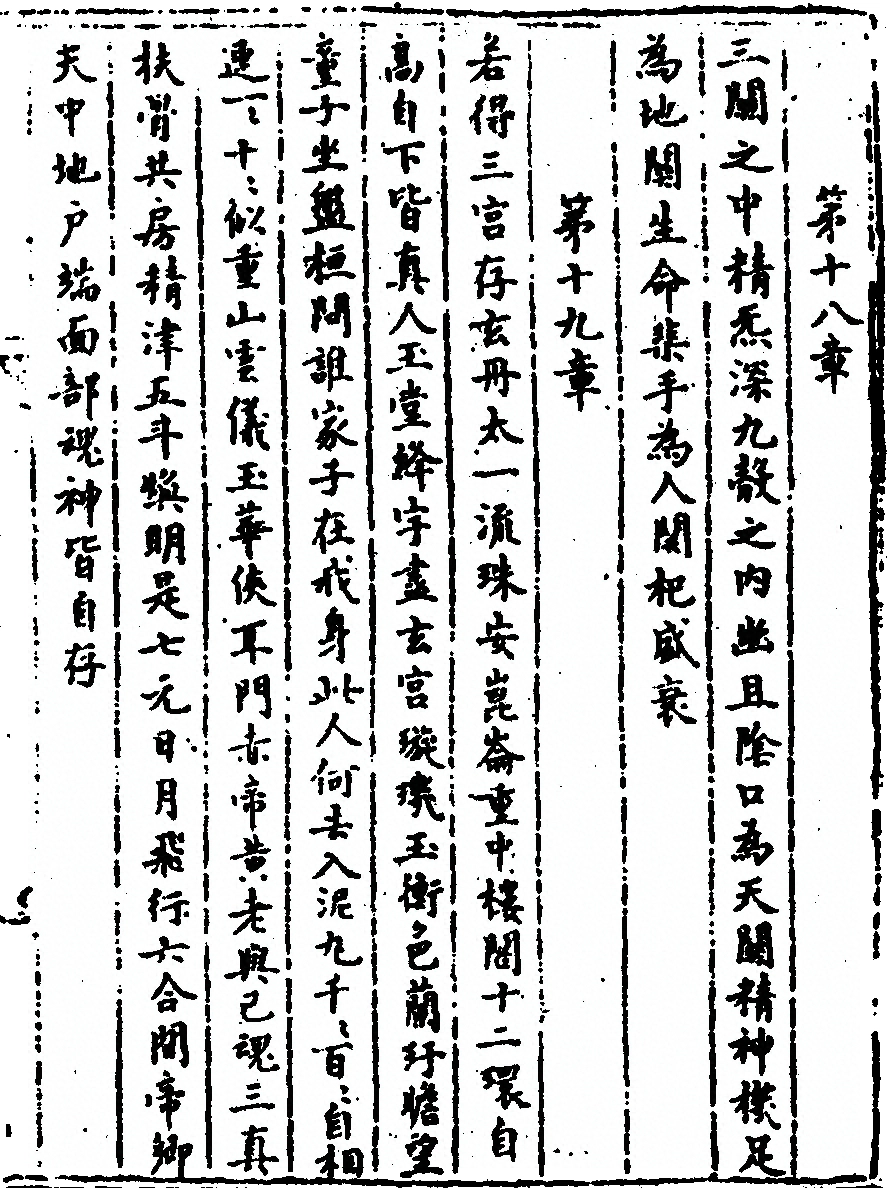 第十八章
三關之中精炁深九㲉之内幽且陰口為天關精神機足
為地關生命棐手為人関把盛衰
第十九章
若得三宫存玄丹太一流珠安崑崙重中樓閣十二環自
髙自下皆真人玉堂絳宇盡玄宫璇璣玉衡色蘭玕瞻望
童子坐盤桓問誰家子在我身此人何去入泥九千〻百〻自相
連一〻十〻似重山雲儀玉華俠耳門赤帝黄老與己魂三真
扶胥共房精津五斗煥明是七元日月飛行六合間帝卿
天中地户端面部魂神皆自存